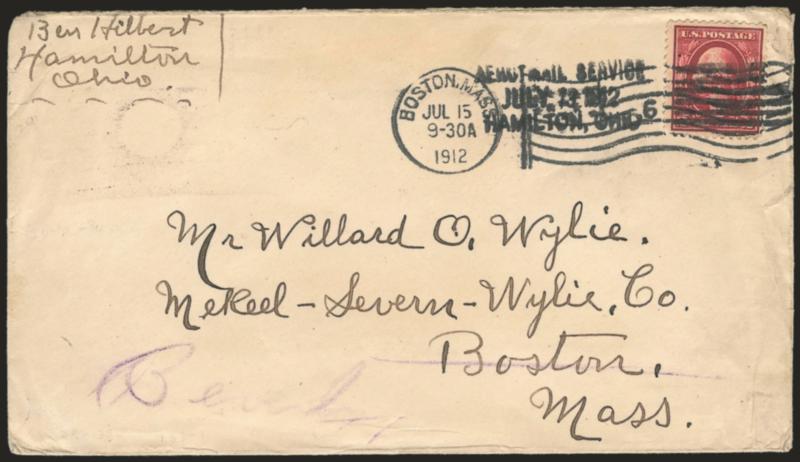 Ben Hilbert
Hamilton
Ohio.
U.S. POSTAGE
AERO MAIL SERVICE
JULY 13 1912
HAMILTON, OHIO
6
BOSTON, MASS
JUL 15
9-30A
1912
Mr Willard O. Wylie.
Mekeel-Severn-Wylie, Co.
Boston,
Mass.
Beverly